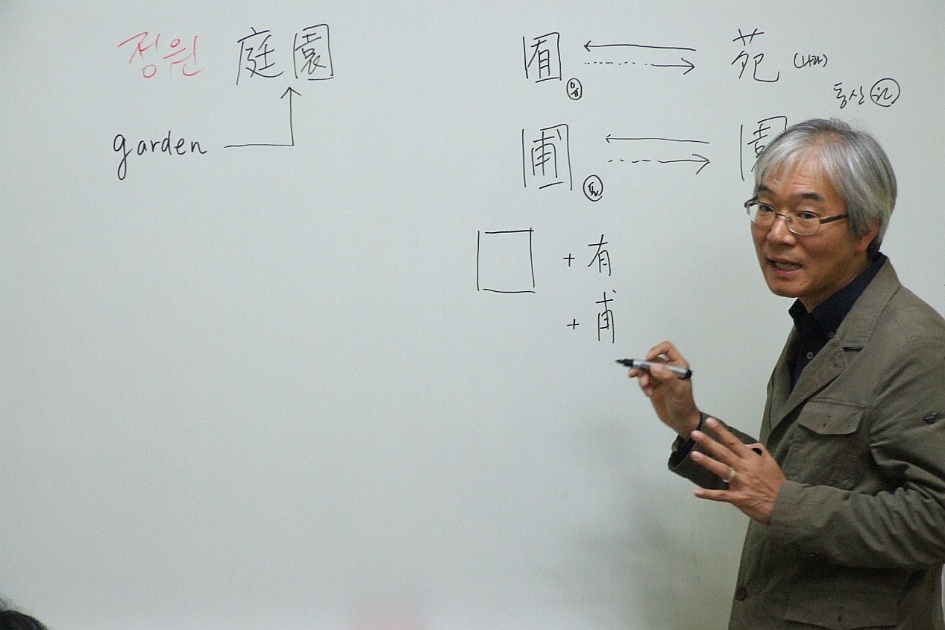 정원 庭園
garden
囿 苑
유
동산 원
圃 園
포
+ 有
+ 甫